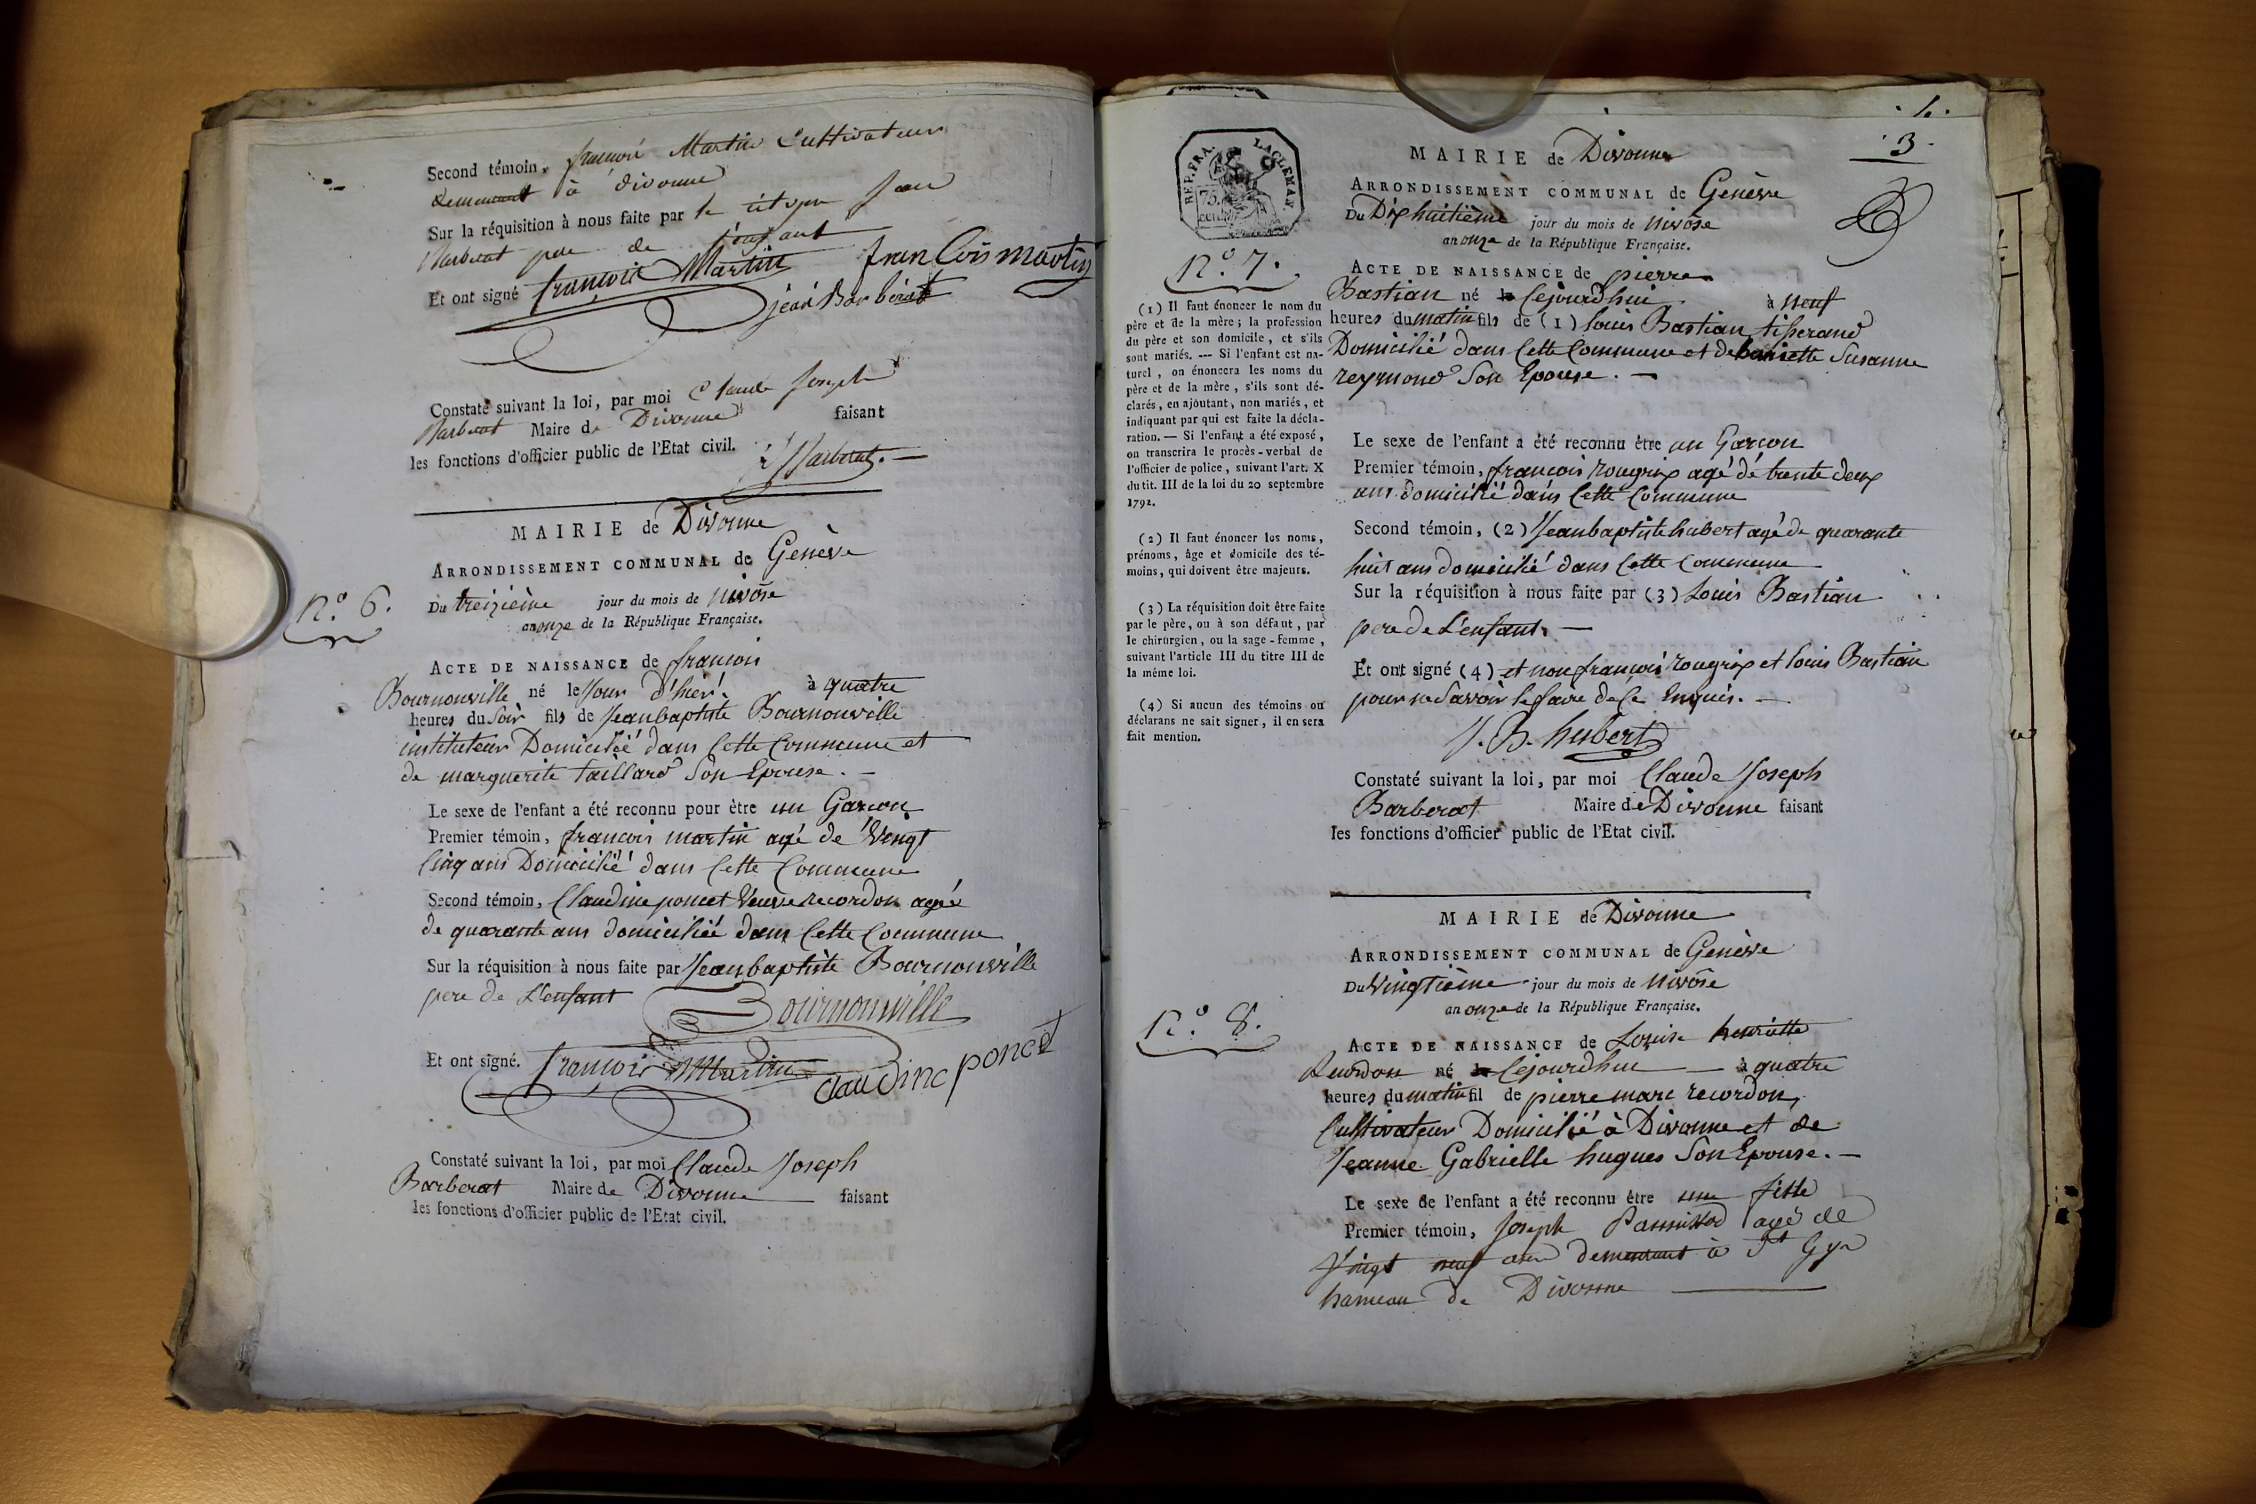 Second témoin, françois Martin Cultivateur
demeurant à divonne
Sur la réquisition à nous faite par le citoyen Jean
Barberat pere de l'enfant
Et ont signé françois Martin franCois martin
jean Barberat
Constaté suivant la loi, par moi Claude Joseph
Barberat Maire de Divonne faisant
les fonctions d'officier public de l'Etat civil.
Barberat.
MAIRIE de Divonne
ARRONDISSEMENT COMMUNAL de Genève
n.° 6.
Du treizième jour du mois de nivôse
an onze de la République Française.
ACTE DE NAISSANCE de francois
Bournonville né le Jour d'hier. à quatre
heures du Soir fils de Jeanbaptiste Bournonville
instituteur Domicilié dans Cette Commune et
de marguerite taillard Son Epouse. —
Le sexe de l'enfant a été reconnu pour être un Garcon
Premier témoin, francois martin agé de Vingt
Cinq ans Domicilié dans Cette Commune
Second témoin, Claudine poncet Veuve recordon agée
de quarante ans domiciliée dans Cette Commune
Sur la réquisition à nous faite par Jeanbaptiste Bournonville
pere de L'enfant
Bournonville
Et ont signé. françois Martin Claudine poncet
Constaté suivant la loi, par moi Claude Joseph
Barberat Maire de Divonne faisant
les fonctions d'officier public de l'Etat civil.
4.
3.
REP. FRA. LAC LEMAN.
75. cent.
MAIRIE de Divonne
ARRONDISSEMENT COMMUNAL de Genève
Du Dixhuitième jour du mois de nivôse
an onze de la République Française.
n.° 7.
ACTE DE NAISSANCE de pierre
Bastian né Cejourdhui à neuf
heures du matin fils de (1) Louis Bastian tisserand
Domicilié dans Cette Commune et de henriette Susanne
reymond Son Epouse. —
Le sexe de l'enfant a été reconnu être un Garcon
Premier témoin, francois rougrix agé de trente deux
ans domicilié dans Cette Commune
Second témoin, (2) Jeanbaptiste hubert agé de quarante
huit ans domicilié dans Cette Commune
Sur la réquisition à nous faite par (3) Louis Bastian
pere de L'enfant. —
Et ont signé (4) et non francois rougrix et louis Bastian
pour ne Savoir le faire de Ce Enquis. —
J. B. hubert
Constaté suivant la loi, par moi Claude Joseph
Barberat Maire de Divonne faisant
les fonctions d'officier public de l'Etat civil.
(1) Il faut énoncer le nom du
père et de la mère ; la profession
du père et son domicile, et s'ils
sont mariés. — Si l'enfant est na-
turel, on énoncera les noms du
père et de la mère, s'ils sont dé-
clarés, en ajoutant, non mariés, et
indiquant par qui est faite la décla-
ration. — Si l'enfant a été exposé,
on transcrira le procès-verbal de
l'officier de police, suivant l'art. X
du tit. III de la loi du 20 septembre
1792.
(2) Il faut énoncer les noms,
prénoms, âge et domicile des té-
moins, qui doivent être majeurs.
(3) La réquisition doit être faite
par le père, ou à son défaut, par
le chirurgien, ou la sage-femme,
suivant l'article III du titre III de
la même loi.
(4) Si aucun des témoins ou
déclarans ne sait signer, il en sera
fait mention.
MAIRIE de Divonne
ARRONDISSEMENT COMMUNAL de Genève
Du Vingtième jour du mois de nivôse
an onze de la République Française.
n.° 8.
ACTE DE NAISSANCE de Louise henriette
Recordon né Cejourdhui — à quatre
heures du matin fil de pierre marc recordon,
Cultivateur Domicilié à Divonne et de
Jeanne Gabrielle hugues Son Epouse. —
Le sexe de l'enfant a été reconnu être une fille
Premier témoin, Joseph Pannissod agé de
Vingt neuf ans demeurant à St Gyx
hameau de Divonne